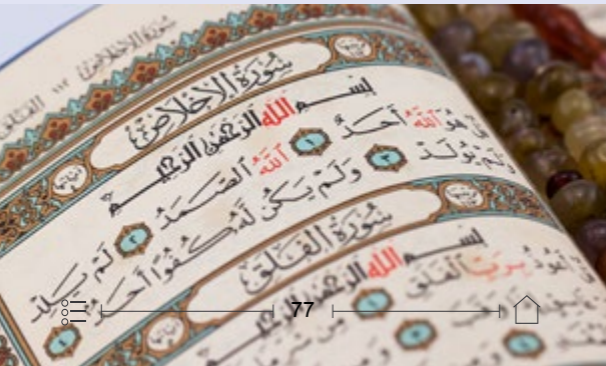 سُورَةُ الإِخْلَاصِ ١١٢ الفلق
سُورَةُ الإِخْلَاصِ
بِسْمِ اللَّهِ الرَّحْمَٰنِ الرَّحِيمِ
قُلْ هُوَ اللَّهُ أَحَدٌ ١ اللَّهُ الصَّمَدُ ٢ لَمْ يَلِدْ
وَلَمْ يُولَدْ ٣ وَلَمْ يَكُنْ لَهُ كُفُوًا أَحَدٌ ٤
سُورَةُ الْفَلَقِ
بِسْمِ اللَّهِ الرَّحْمَٰنِ الرَّحِيمِ
قُلْ أَعُوذُ بِرَبِّ الْفَلَقِ ١ مِنْ شَرِّ
77